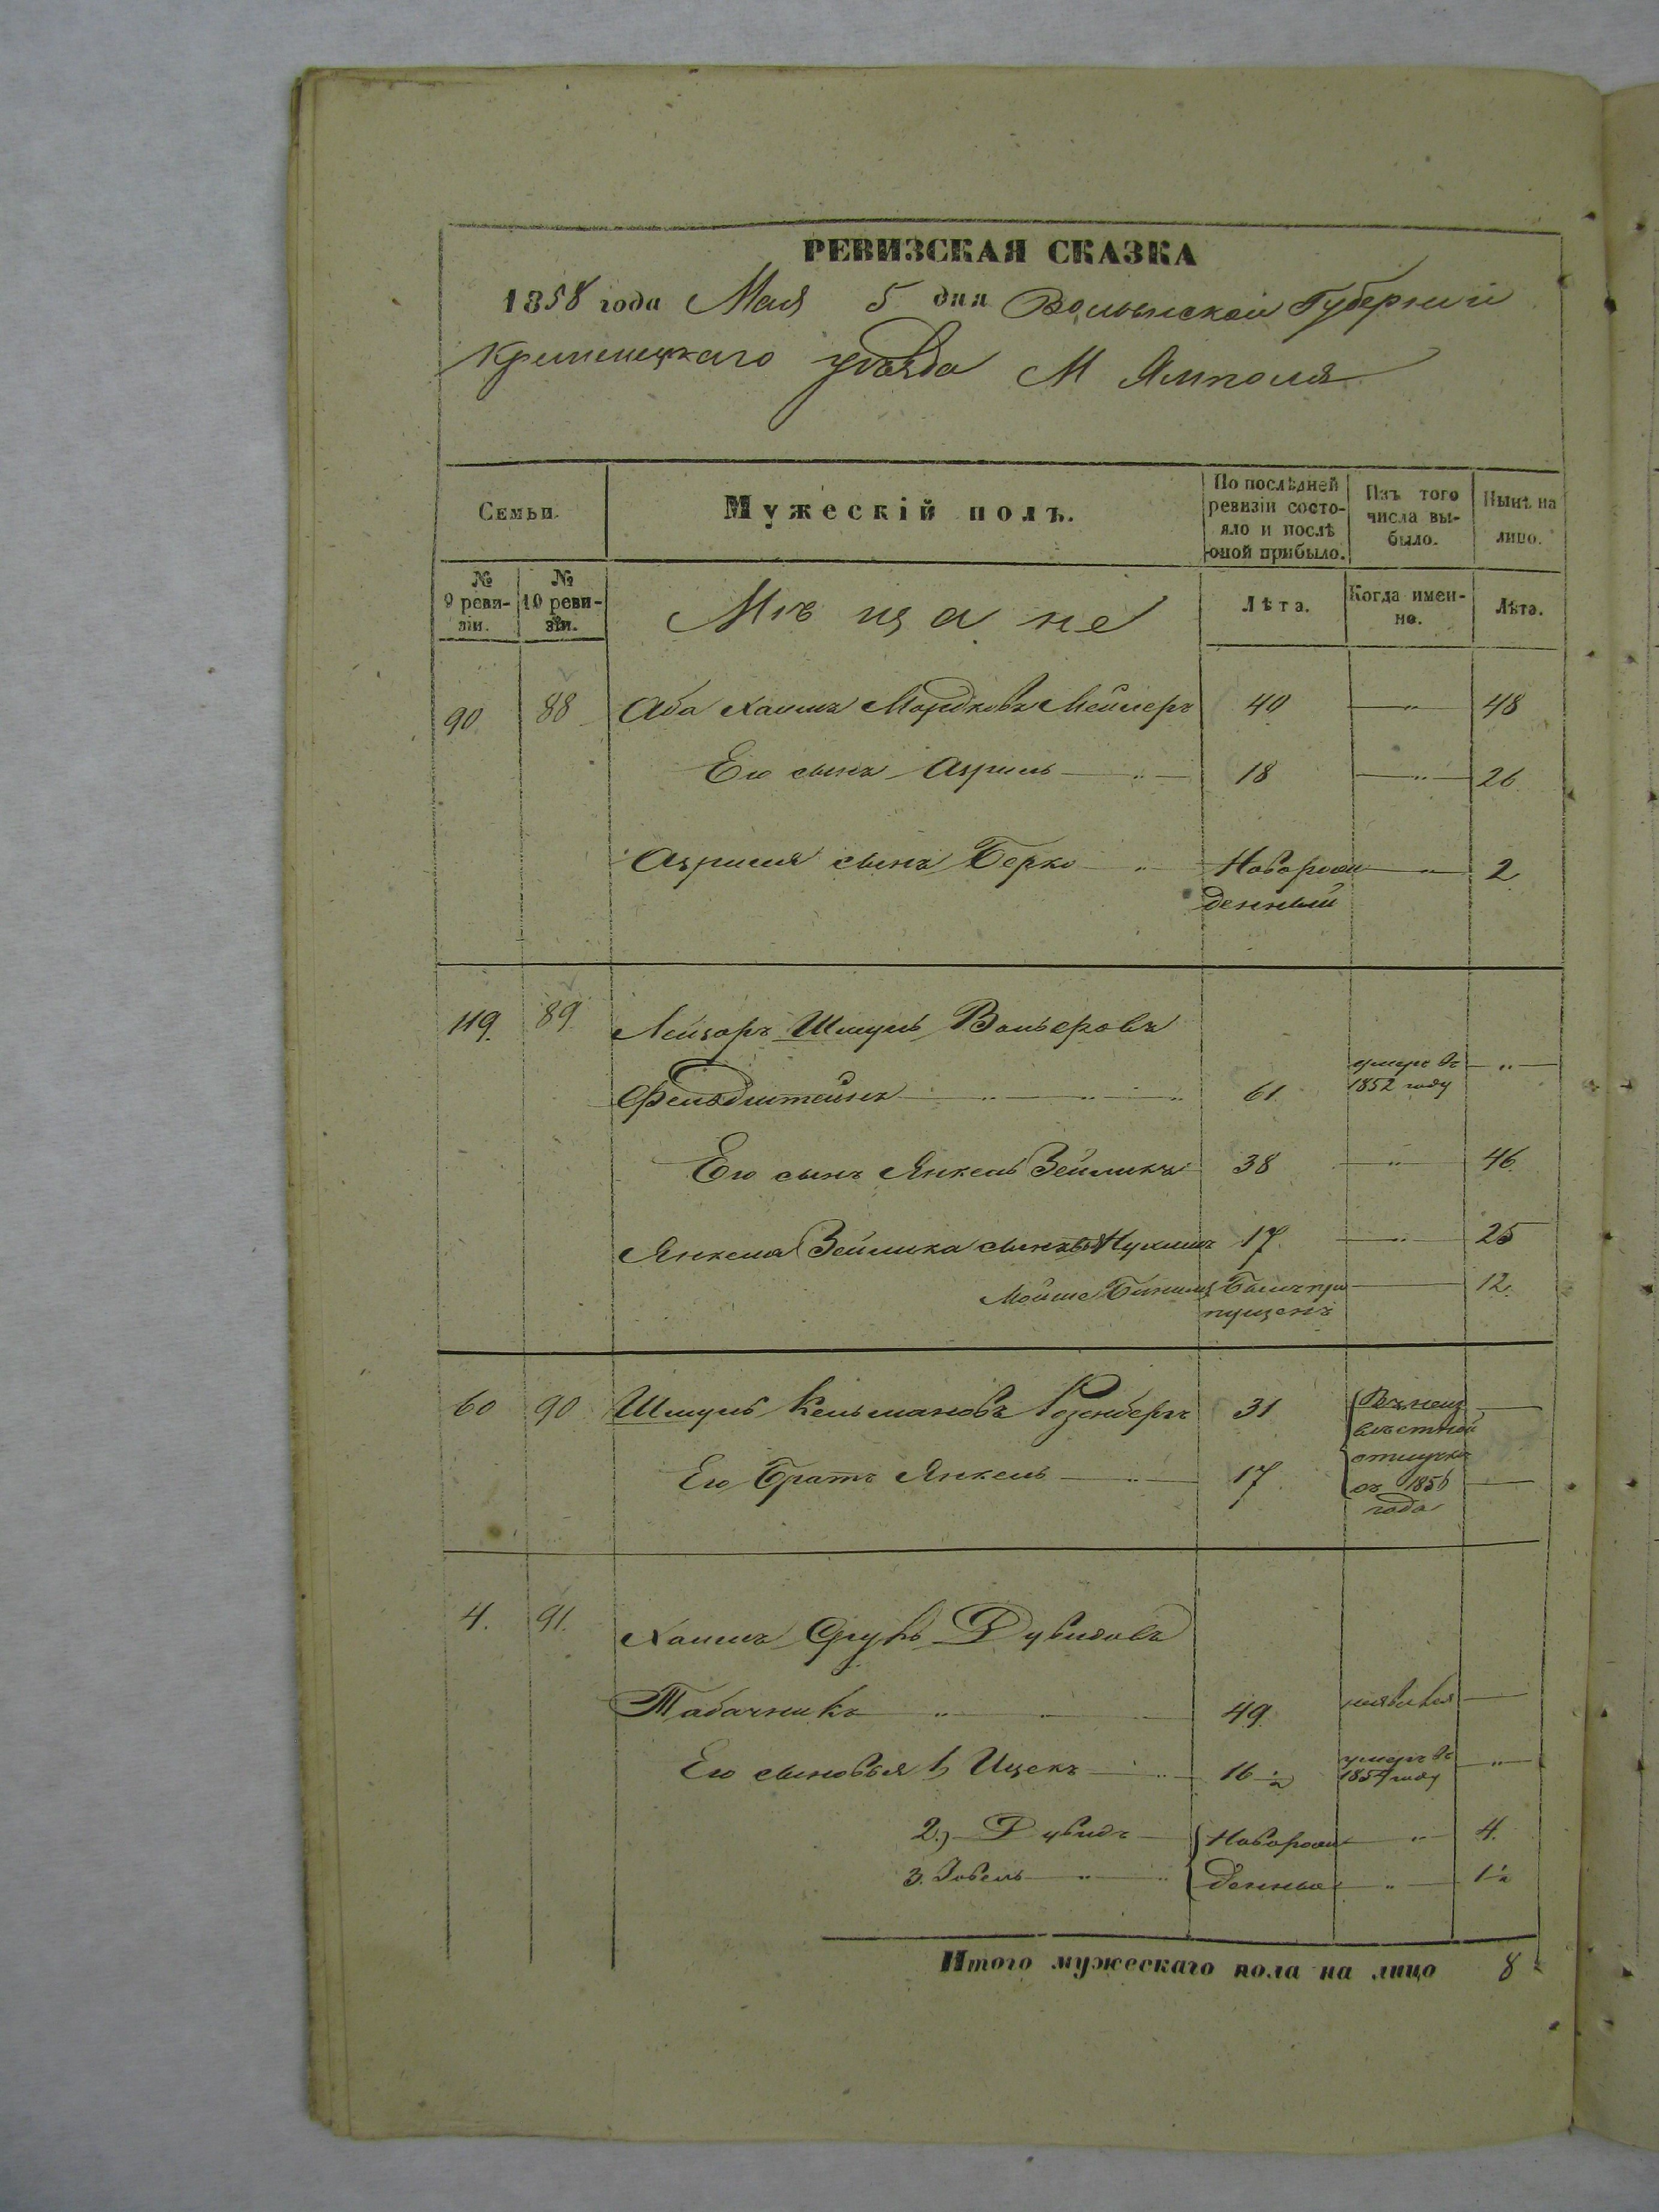 РЕВИЗСКАЯ СКАЗКА
1858 года Мая 5 дня Волынской Губерніи
Кременецкаго уѣзда М Ямполя
Семьи.
Мужескій полъ.
По послѣдней ревизіи состо-
яло и послѣ оной прибыло.
Изъ того числа вы-
было.
Нынѣ на лицо.
№ 9 реви-
зіи.
№ 10 реви-
зіи.
Мѣщане
Лѣта.
Когда имен-
но.
Лѣта.
90 88 Аба Хаимъ Мордковъ Мейлеръ 40 — „ — 48
Его сынъ Азриль — „ — 18 — „ — 26
Азриля сынъ Берко „ — Новорож — „ — 2
денный
119. 89 Лейзоръ Шмуль Вольфовъ
умеръ въ — „ —
Фельдштейнъ — „ — „ — „ 61 1852 году
Его сынъ Янкель Зейликъ 38 — „ — 46
Янкеля Зейлика сынъ Нухимъ 17 — „ — 25
Мойше Биними Былъ про — 12.
пущенъ
60 90 Шмуль Кельмановъ Розенбергъ 31 Въ неиз —
вѣстной
Его Братъ Янкель — „ — 17 отлучкѣ
съ 1856 —
года
4. 91. Хаимъ Сруль Дувидовъ
Табачникъ „ — „ — 49 —
Его сыновья 1, Ицекъ — „ — 16 ½ умеръ въ — „ —
1854 году
2.) Дувидъ — Новорож — „ — 4.
3. Іовель — „ — „ денные — „ — 1½
Итого мужескаго пола на лицо 8